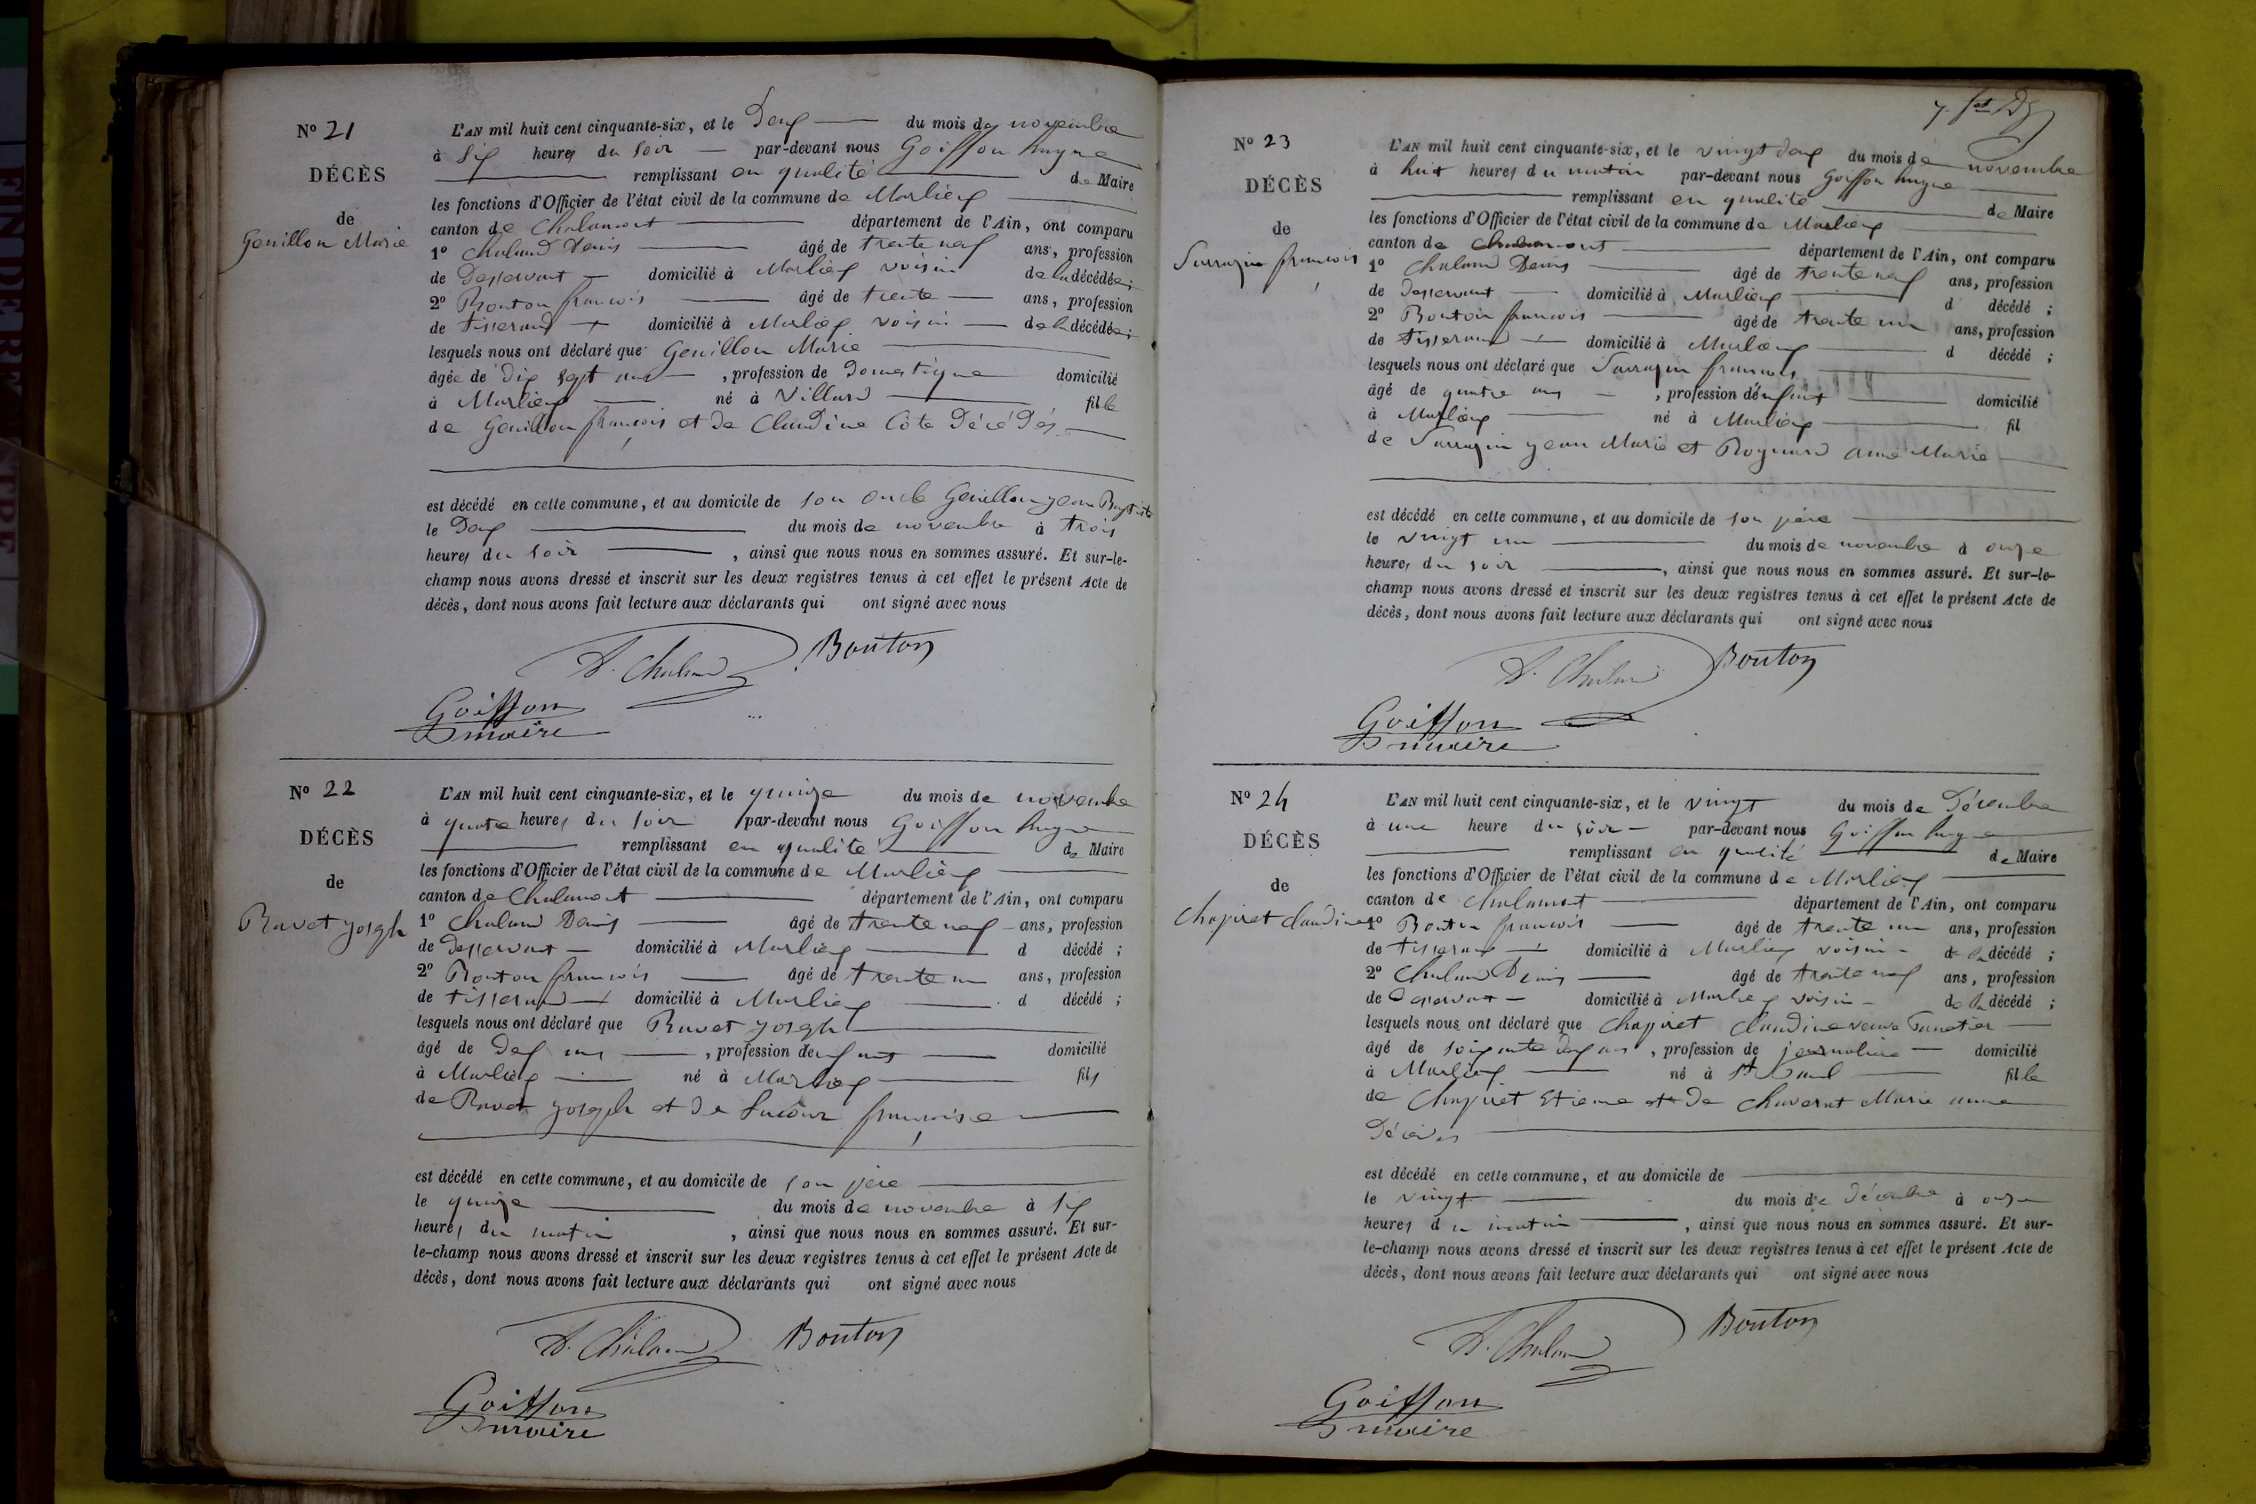 No 21
DÉCÈS
de
Genillon Marie
L'AN mil huit cent cinquante-six, et le Deux du mois de novembre
à Six heures du soir par-devant nous Goiffon hugue
remplissant en qualité de Maire
les fonctions d'Officier de l'état civil de la commune de Marlieux
canton de Chalamont département de l'Ain, ont comparu
1º Chaland Denis âgé de trente neuf ans, profession
de Desservant domicilié à Marlieux voisin de la décédée ;
2º Bouton françois âgé de trente ans, profession
de tisserand domicilié à Marlieux voisin de la décédée ;
lesquels nous ont déclaré que Genillon Marie
âgée de dix sept ans , profession de Domestique domicilié
à Marlieux né à Villard fille
de Genillon françois et de Claudine Côte Décédés
est décédé en cette commune, et au domicile de son oncle Genillon jean Baptiste
le Deux du mois de novembre à trois
heures du soir , ainsi que nous nous en sommes assuré. Et sur-le-
champ nous avons dressé et inscrit sur les deux registres tenus à cet effet le présent Acte de
décès, dont nous avons fait lecture aux déclarants qui ont signé avec nous
D. Chaland Bouton
Goiffon
maire
No 22
DÉCÈS
de
Ravet joseph
L'AN mil huit cent cinquante-six, et le quinze du mois de novembre
à quatre heures du soir par-devant nous Goiffon hugue
remplissant en qualité de Maire
les fonctions d'Officier de l'état civil de la commune de Marlieux
canton de Chalamont département de l'Ain, ont comparu
1º Chaland Denis âgé de trente neuf ans, profession
de Desservant domicilié à Marlieux d décédé ;
2º Bouton françois âgé de trente un ans, profession
de tisserand domicilié à Marlieux d décédé ;
lesquels nous ont déclaré que Ravet joseph
âgé de Deux ans , profession d'enfant domicilié
à Marlieux né à Marlieux fils
de Ravet joseph et de françoise
est décédé en cette commune, et au domicile de son père
le quinze du mois de novembre à six
heures du matin , ainsi que nous nous en sommes assuré. Et sur-
le-champ nous avons dressé et inscrit sur les deux registres tenus à cet effet le présent Acte de
décès, dont nous avons fait lecture aux déclarants qui ont signé avec nous
D. Chaland Bouton
Goiffon
maire
No 23
DÉCÈS
de
Sarrazin françois
L'AN mil huit cent cinquante-six, et le vingt deux du mois de novembre
à huit heures du matin par-devant nous Goiffon hugue
remplissant en qualité de Maire
les fonctions d'Officier de l'état civil de la commune de Marlieux
canton de Chalamont département de l'Ain, ont comparu
1º Chaland Denis âgé de trente neuf ans, profession
de Desservant domicilié à Marlieux d décédé ;
2º Bouton françois âgé de trente un ans, profession
de tisserand domicilié à Marlieux d décédé ;
lesquels nous ont déclaré que Sarrazin françois
âgé de quatre ans , profession d'enfant domicilié
à Marlieux né à Marlieux fil
de Sarrazin jean Marie et Poignard anne Marie
est décédé en cette commune, et au domicile de son père
le vingt un du mois de novembre à onze
heures du soir , ainsi que nous nous en sommes assuré. Et sur-le-
champ nous avons dressé et inscrit sur les deux registres tenus à cet effet le présent Acte de
décès, dont nous avons fait lecture aux déclarants qui ont signé avec nous
D. Chaland Bouton
Goiffon
maire
No 24
DÉCÈS
de
Chapiret claudine
L'AN mil huit cent cinquante-six, et le vingt du mois de Décembre
à une heure du soir par-devant nous Goiffon hugue
remplissant en qualité de Maire
les fonctions d'Officier de l'état civil de la commune de Marlieux
canton de Chalamont département de l'Ain, ont comparu
1º Bouton françois âgé de trente un ans, profession
de tisserand domicilié à Marlieux voisin de la décédé ;
2º Chaland Denis âgé de trente neuf ans, profession
de Desservant domicilié à Marlieux voisin de la décédé ;
lesquels nous ont déclaré que Chapiret claudine veuve
âgé de soixante deux ans , profession de journalière domicilié
à Marlieux né à St Paul fille
de Chapiret Etienne et de Chaverat Marie anne
Décédés
est décédé en cette commune, et au domicile de
le vingt du mois de Décembre à onze
heures du matin , ainsi que nous nous en sommes assuré. Et sur-
le-champ nous avons dressé et inscrit sur les deux registres tenus à cet effet le présent Acte de
décès, dont nous avons fait lecture aux déclarants qui ont signé avec nous
D. Chaland Bouton
Goiffon
maire